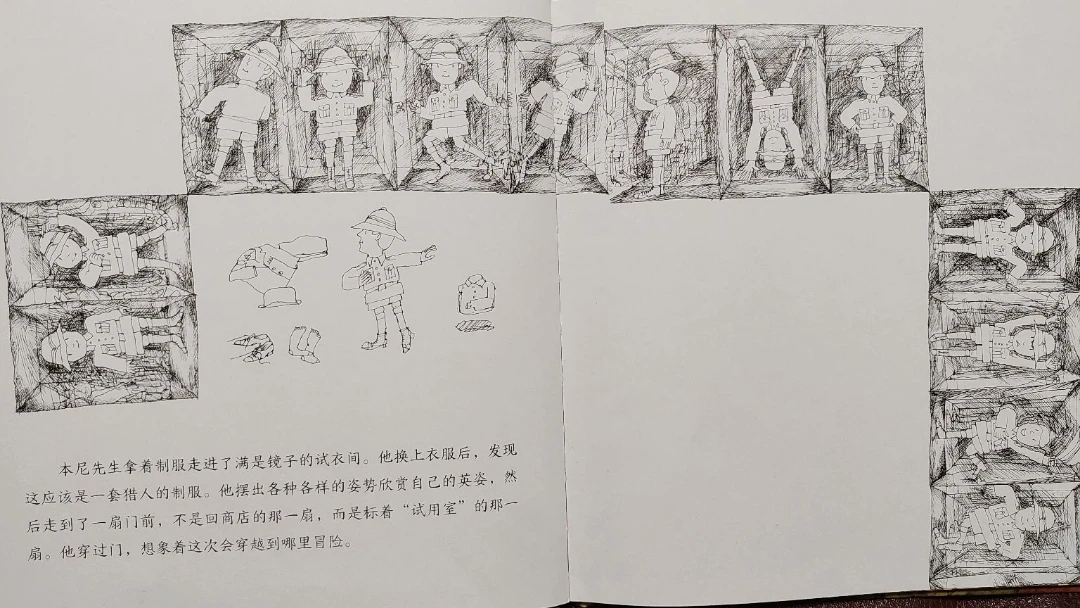 本尼先生拿着制服走进了满是镜子的试衣间。他换上衣服后，发现
这应该是一套猎人的制服。他摆出各种各样的姿势欣赏自己的英姿，然
后走到了一扇门前，不是回商店的那一扇，而是标着“试用室”的那一
扇。他穿过门，想象着这次会穿越到哪里冒险。